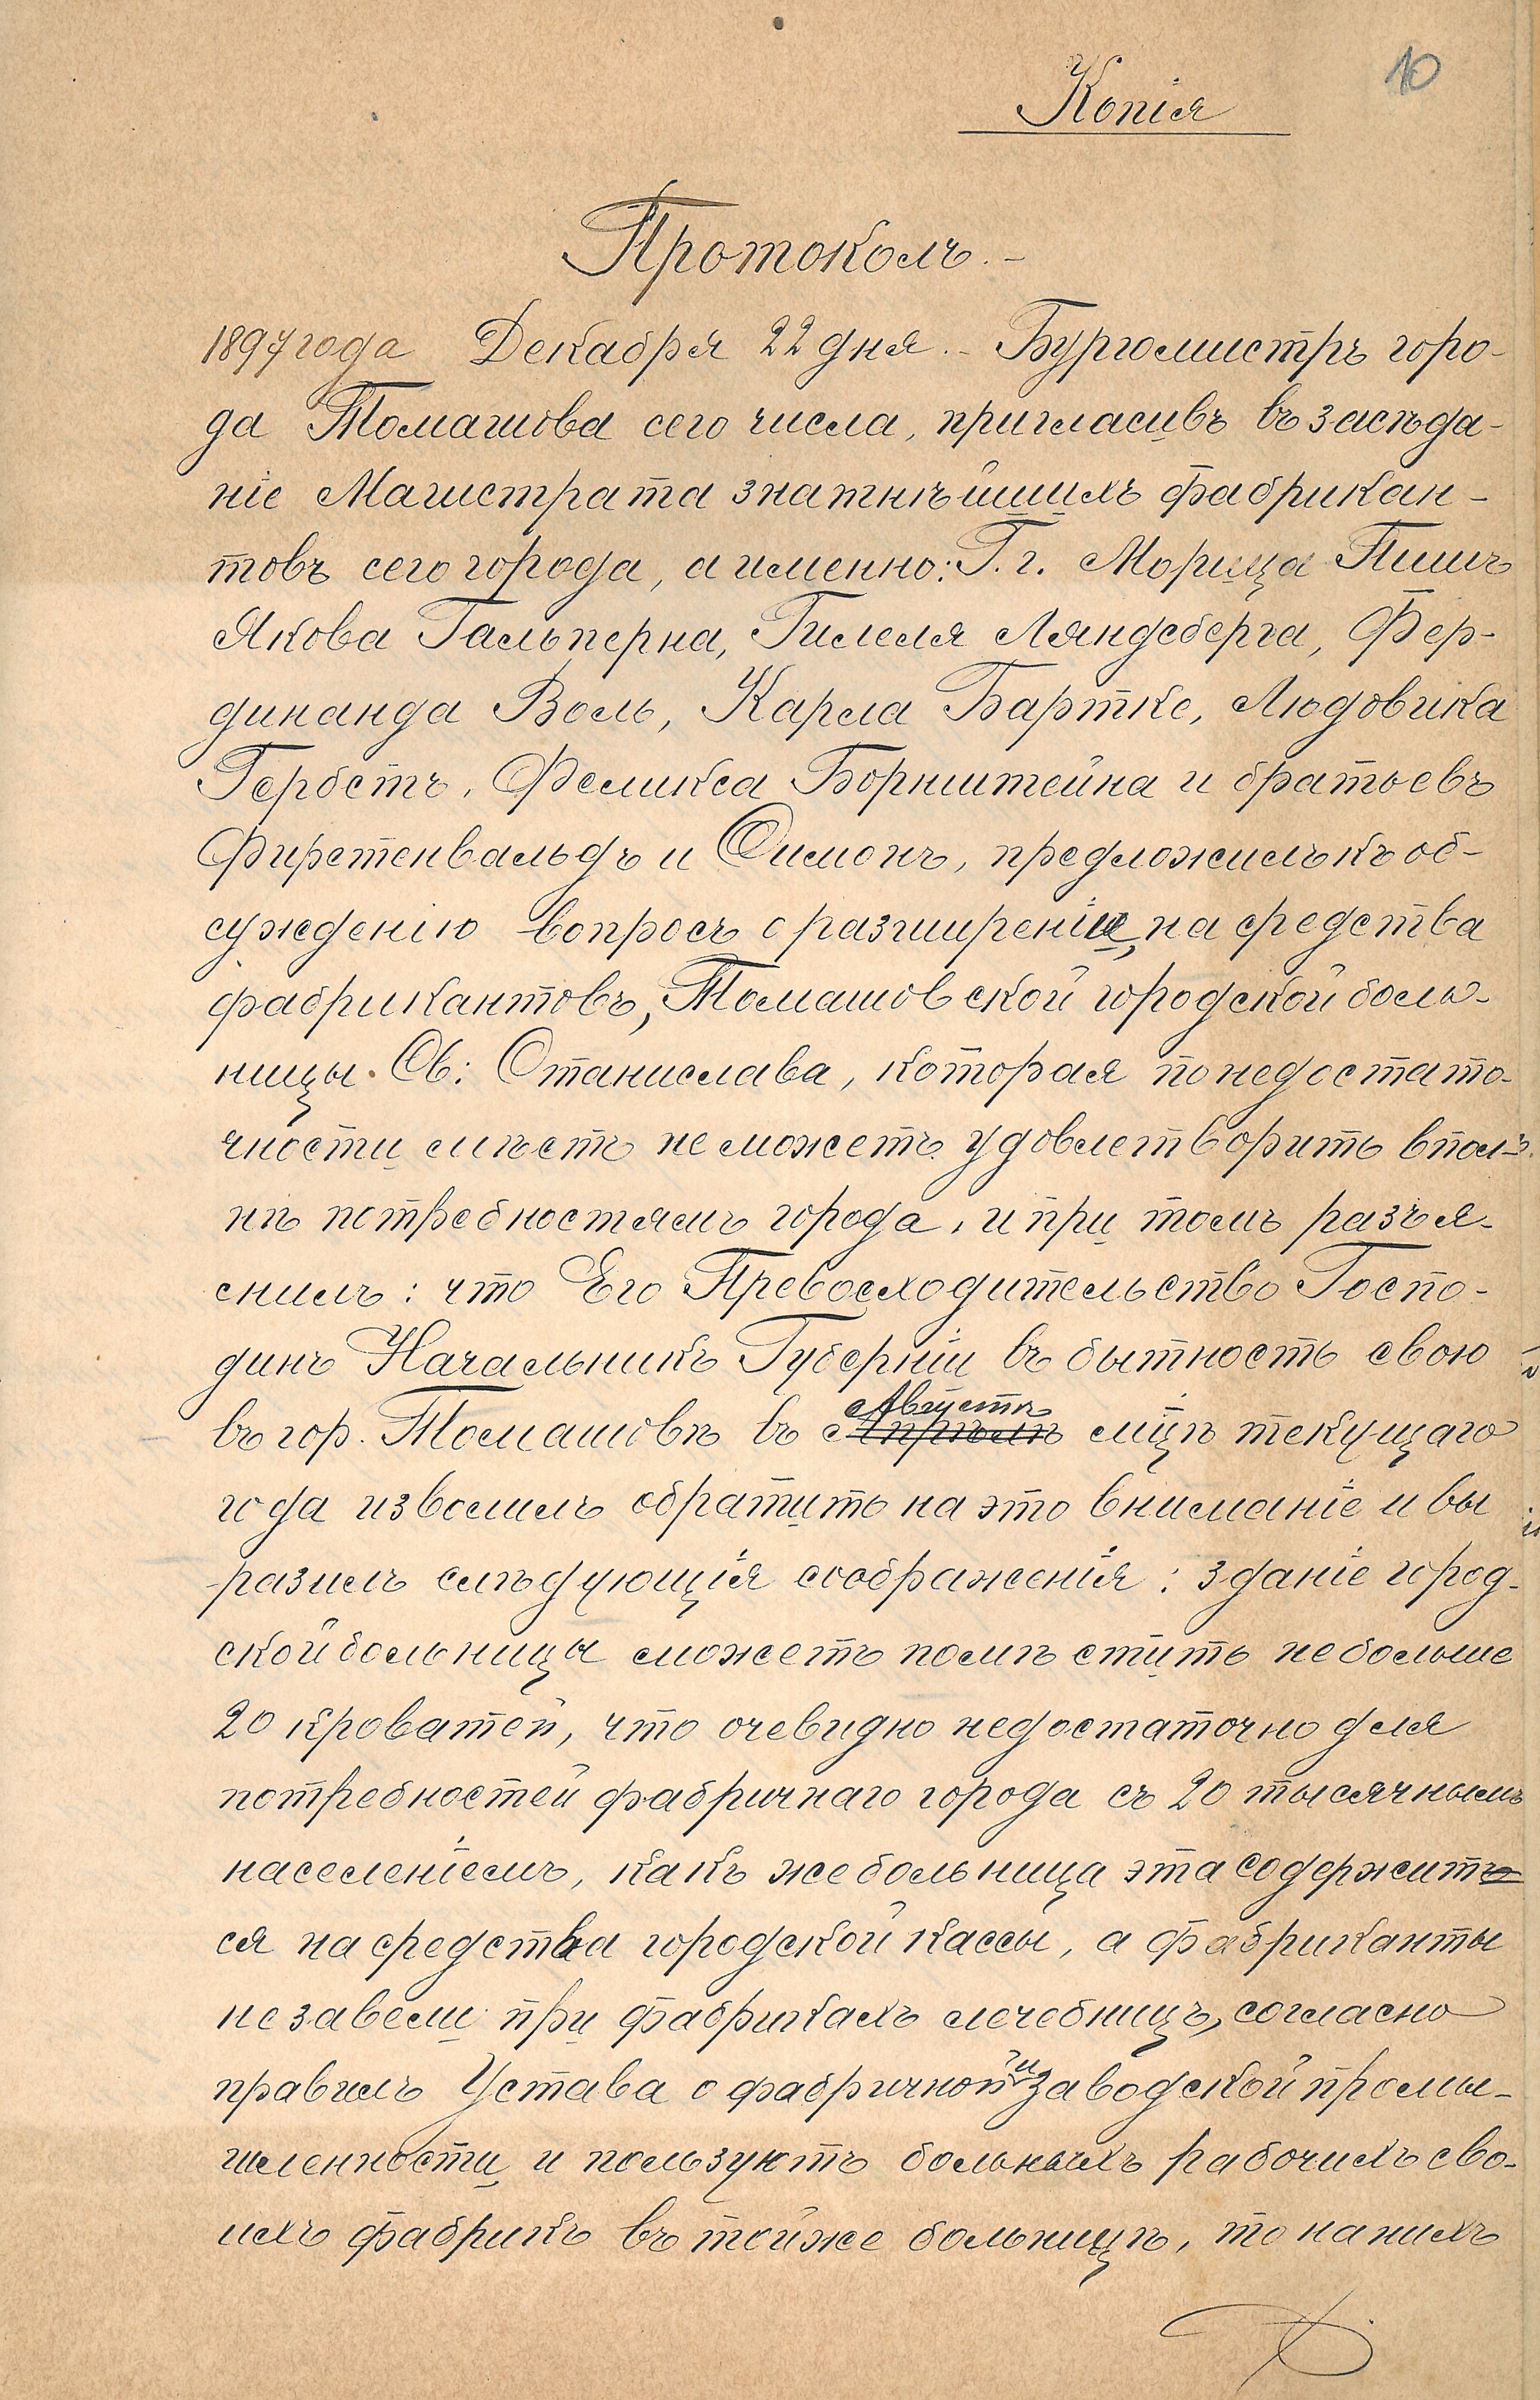 10
Копія
Протоколъ.-
1897 года Декабря 22 дня.- Бургомистръ горо-
да Томашова сего числа, пригласивъ въ засѣда-
ніе Магистрата знатнѣйшихъ фабрикан-
товъ сего города, а именно: Г.г. Морица Пишъ
Якова Гальперна, Гилеля Ляндсберга, Фер-
динанда Воль, Карла Бартке, Людовика
Гербстъ, Феликса Борнштейна и братьевъ
Фирстенвальдъ и Симонъ, предложилъ къ об-
сужденію вопросъ о разширеніи, на средства
фабрикантовъ, Томашовской городской боль-
ницы Св: Станислава, которая по недостато-
чности мѣстъ не можетъ удовлетворить впол-
нѣ потребностямъ города, и при томъ разъя-
снилъ: что Его Превосходительство Госпо-
динъ Начальникъ Губерніи въ бытность свою
Августѣ
въ гор. Томашовѣ въ Апрѣлѣ мцѣ текущаго
года изволилъ обратить на это вниманіе и вы
разилъ слѣдующія соображенія: зданіе город-
ской больницы сможетъ помѣстить не больше
20 кроватей, что очевидно недостаточно для
потребностей фабричнаго города съ 20 тысячнымъ
населеніемъ, какъ же больница эта содержитъ
ся на средства городской кассы, а фабриканты
не завели при фабрикахъ лечебницъ, согласно
правилъ Устава о фабричной и заводской промы-
шленности и пользуютъ больныхъ рабочихъ сво-
ихъ фабрикъ въ тойже больницѣ, то на нихъ